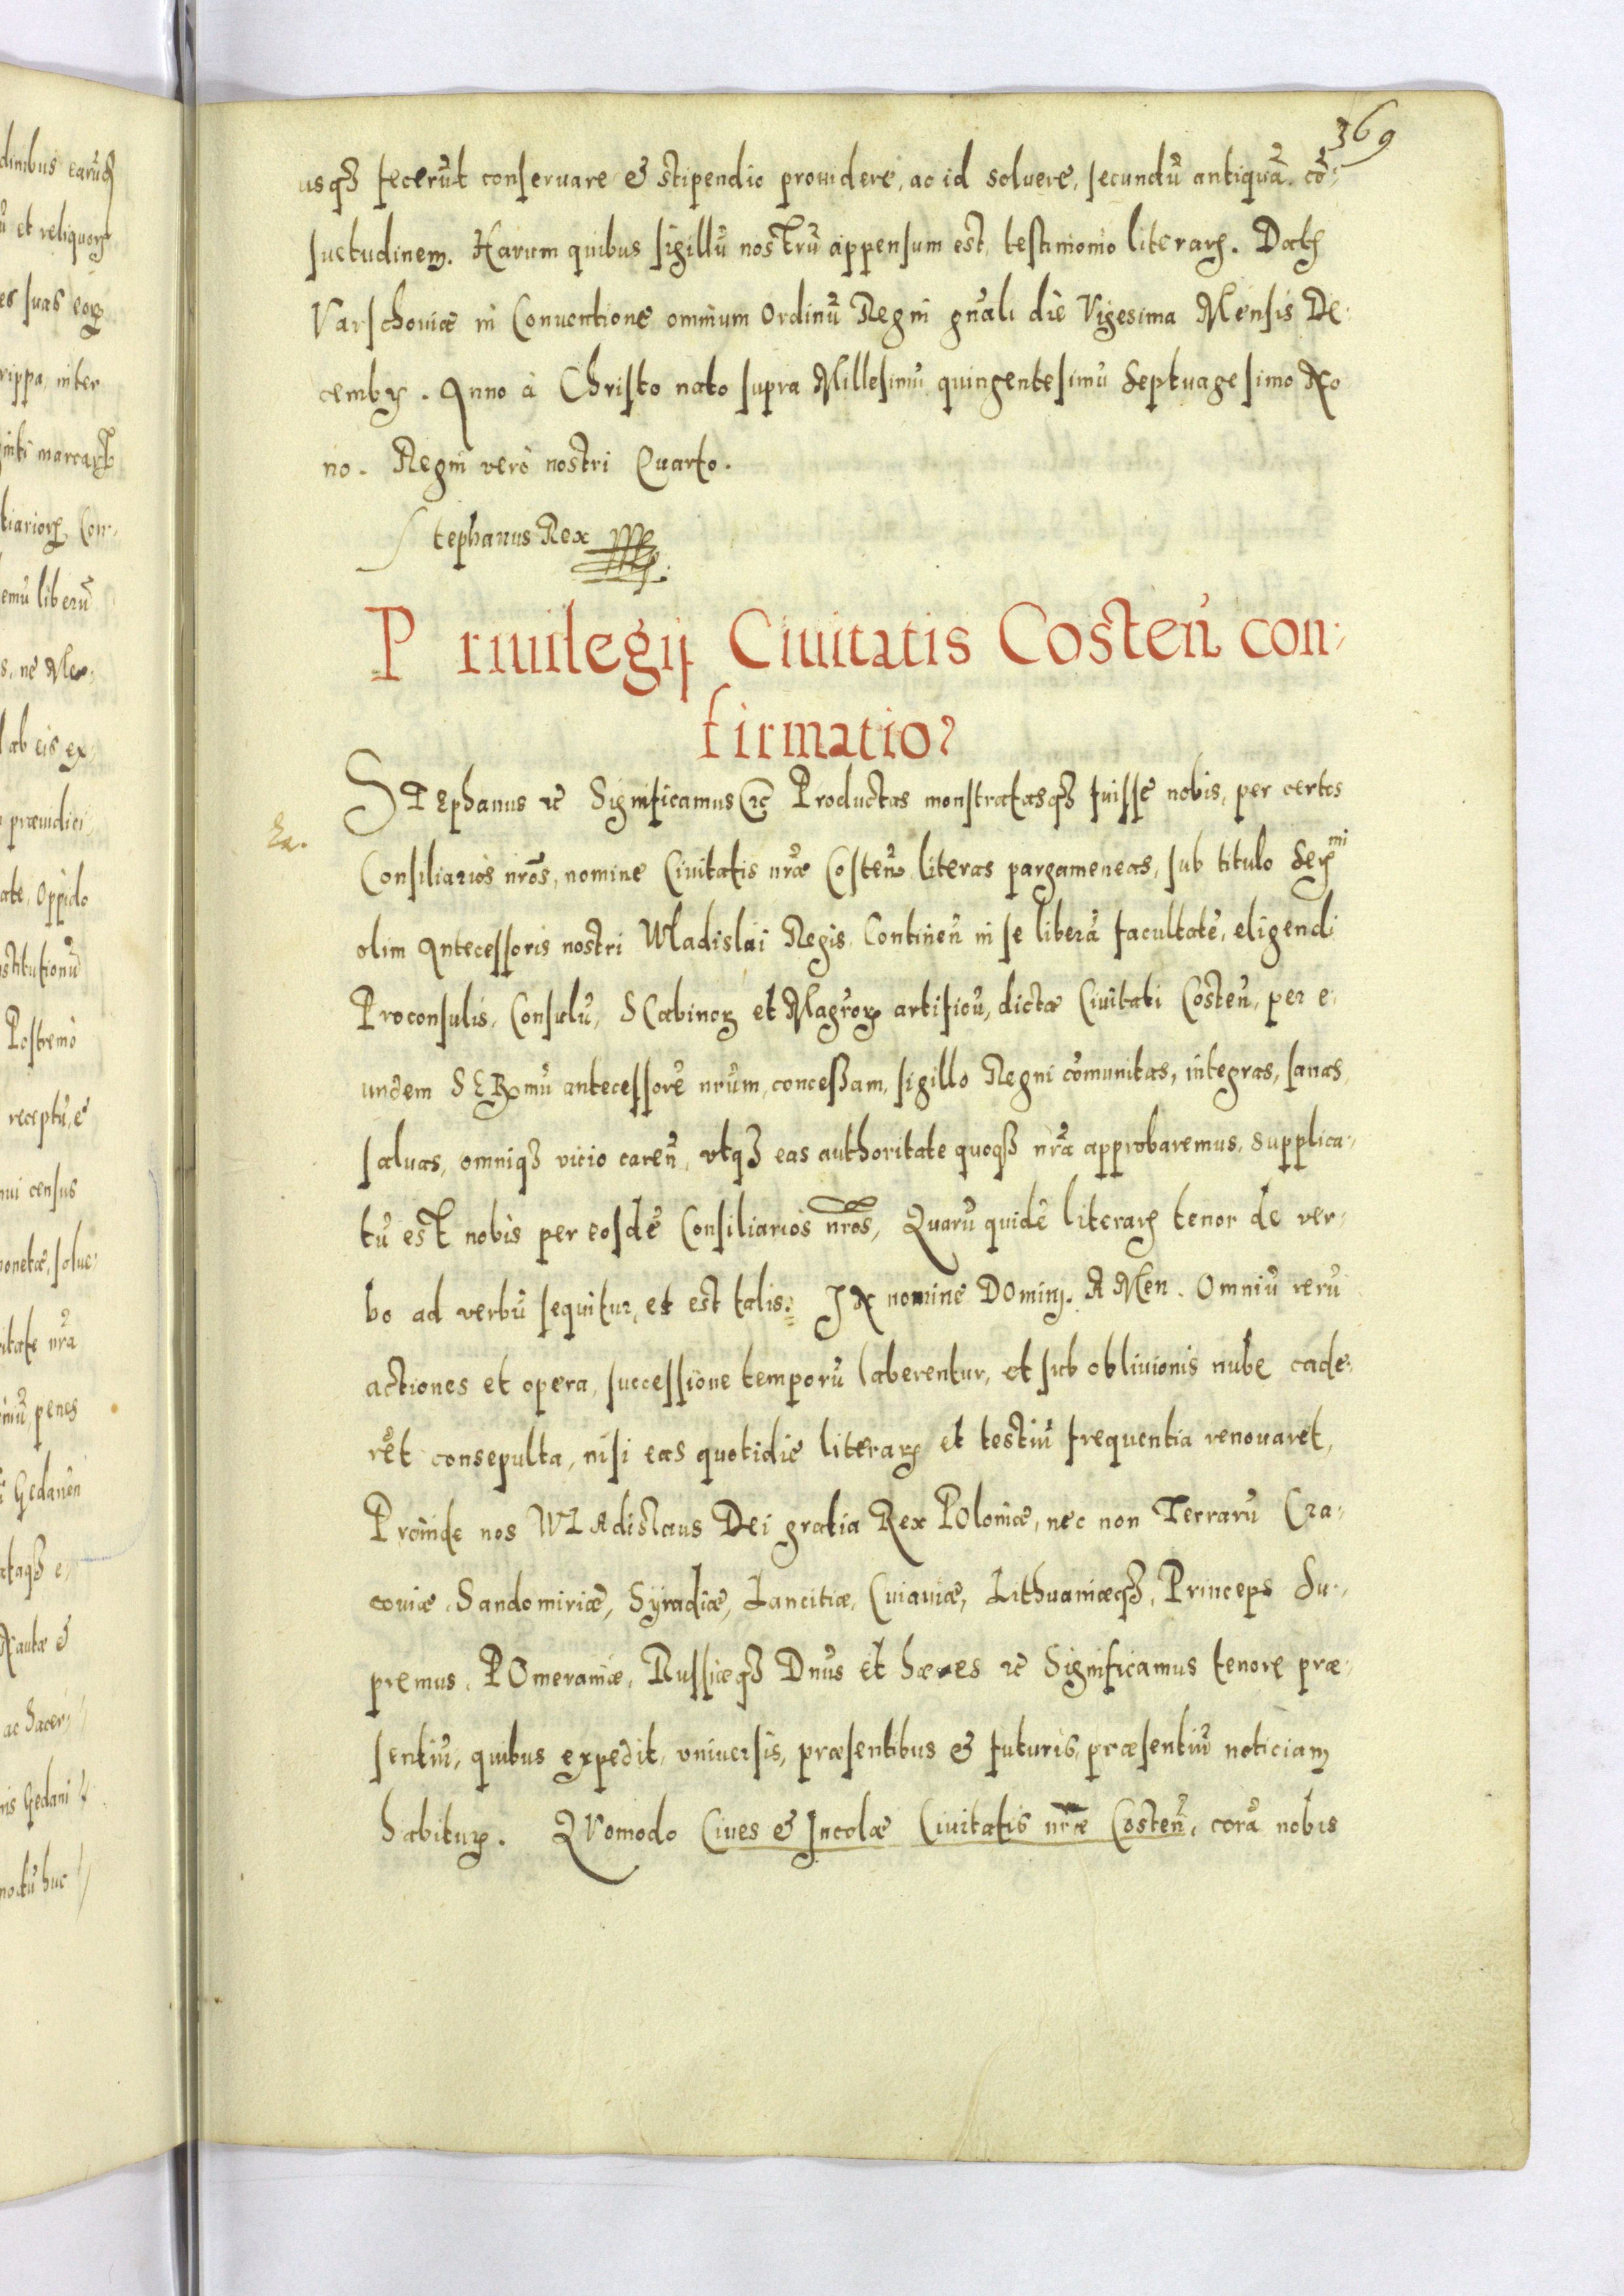 369
usqȝ fecerūt conseruare & stipendio prouidere, ac id soluere, secundū antiquā cō-
suetudinem. Harum quibus sigillū nostrū appensum est, testimonio literarꝫ. Datꝫ
Varschouiæ in Conuentione omnium Ordinū Regni gn̄ali die Vigesima Mensis De-
cembrꝫ. Anno à Christo nato supra Millesimū quingentesimū Septuagesimo No
no. Regni verò nostri Quarto.
Stephanus Rex
Priuilegij Ciuitatis Costen̄ con-
firmatio
STEphanus ꝛc Significamus ꝛc Productas monstratasqȝ fuisse nobis, per certos
Consiliarios nr̄os, nomine Ciuitatis nr̄æ Costen̄ literas pargameneas, sub titulo Serꝫmi
olim Antecessoris nostri Wladislai Regis, Continen̄ in se liberā facultatē, eligendi
Proconsulis, Consulū, SCabinorꝫ et Magr̄orꝫ artificū, dictæ Ciuitati Costen̄, per e-
undem SERꝫmū antecessorē nr̄um, conceßam, sigillo Regni cōmunitas, integras, sanas,
saluas, omniqȝ vicio caren̄, vtqȝ eas authoritate quoqȝ nr̄a approbaremus, supplica-
tū est nobis per eosdē Consiliarios nr̄os, Quarū quidē literarꝫ tenor de ver-
bo ad verbū sequitur, et est talis: IN nomine DOmini. AMen. Omniū rerū
actiones et opera, successione temporū laberentur, et sub obliuionis nube cade-
rēt consepulta, nisi eas quotidie literarꝫ et testiū frequentia renouaret,
Proinde nos WLAdislaus Dei gratia Rex POloniæ, nec non Terrarū Cra-
couiæ, Sandomiriæ, Syradiæ, Lancitiæ, Cuiauiæ, Lithuaniæqȝ, Princeps Su-
premus, POmeraniæ, Russiæqȝ Dn̄us et hæres ꝛc Significamus tenore præ-
sentiū, quibus expedit, vniuersis, præsentibus & futuris, præsentiū noticiam
habiturꝫ. QVomodo Ciues & Incolæ Ciuitatis nr̄æ Costen̄, corā nobis